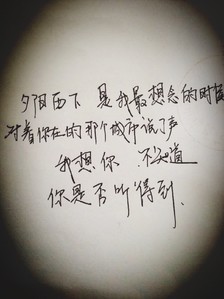 夕阳西下 是我最想念的时候
对着你在的那个城市说了声
我想你 不知道
你是否听得到.